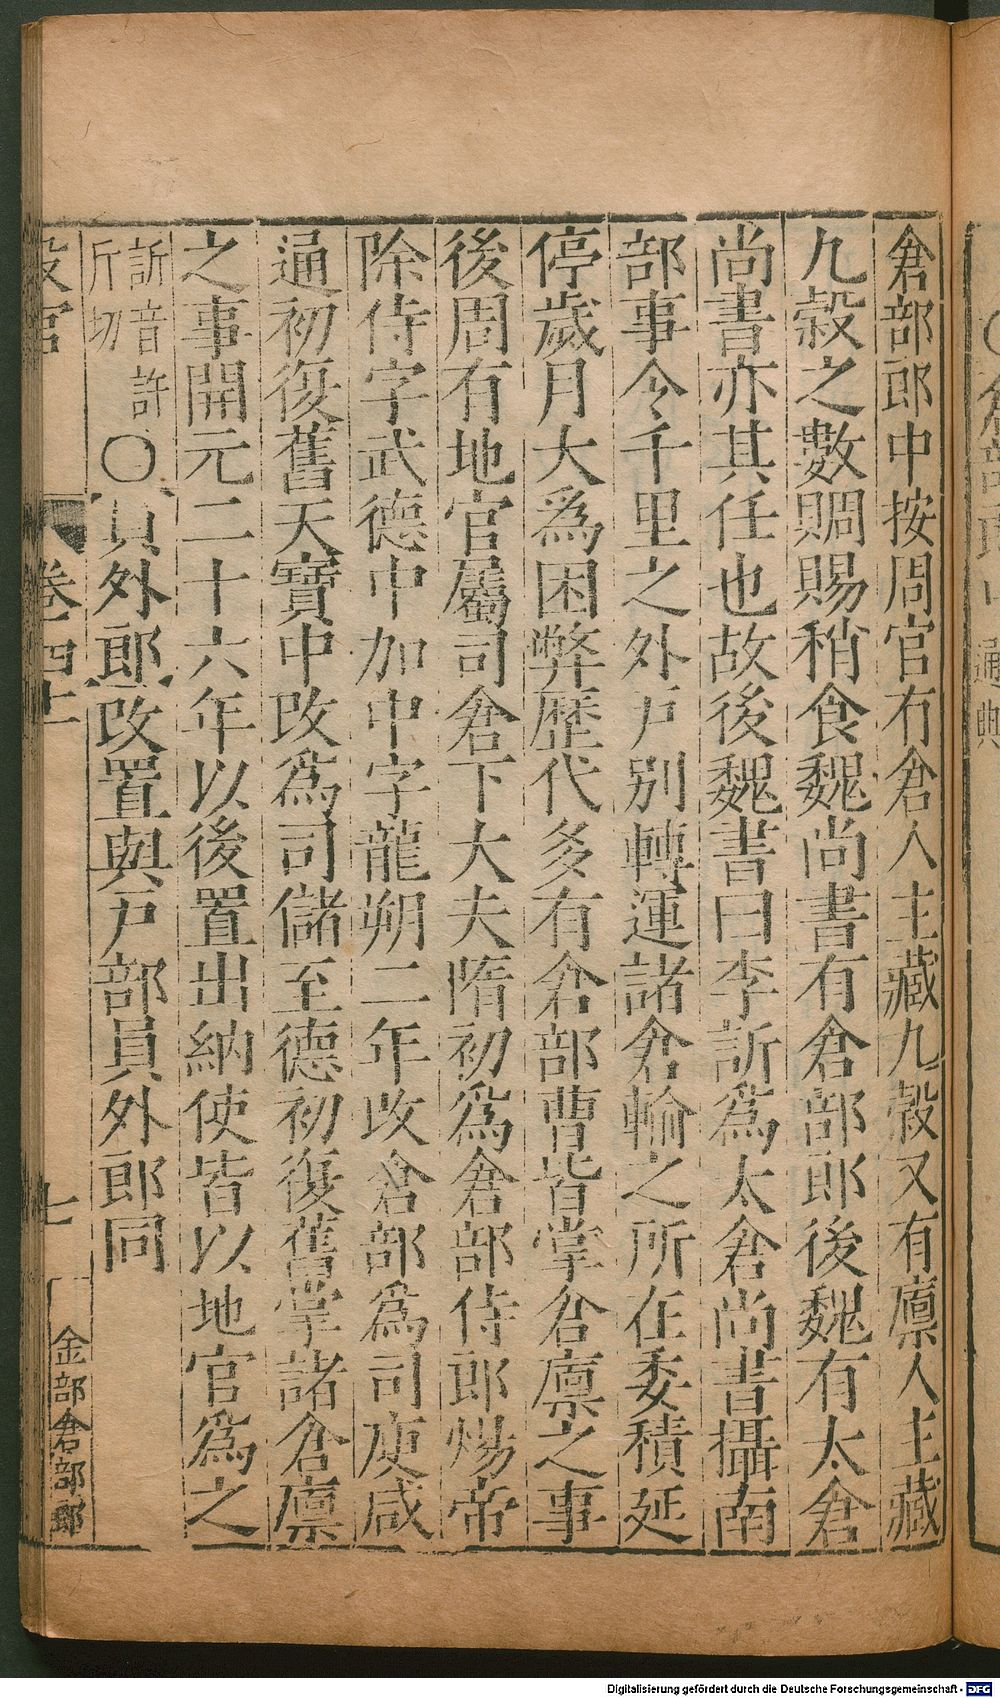 倉部郎中按周官有倉人主藏九穀又有廩人主藏
九穀之數賙賜稍食魏尚書有倉部郎後魏有太倉
尚書亦其任也故後魏書曰李訢為太倉尚書攝南
部事今千里之外戶別轉運諸倉輸之所在委積延
停歲月大為困弊歷代多有倉部曹皆掌倉廩之事
後周有地官屬司倉下大夫隋初為倉部侍郎煬帝
除侍字武德中加中字龍朔二年改倉部為司庾咸
通初復舊天寶中改為司儲至德初復舊掌諸倉廩
之事開元二十六年以後置出納使皆以地官為之
訢音許斤切〇員外郎改置與戶部員外郎同
設官 卷四十 七 金部倉部郎
Digitalisierung gefördert durch die Deutsche Forschungsgemeinschaft - DFG